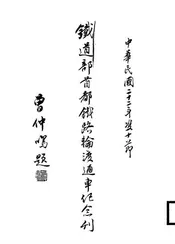 中華民國二十二年雙十節
鐵道部首都鐵路輪渡通車紀念刊
曾仲鳴題